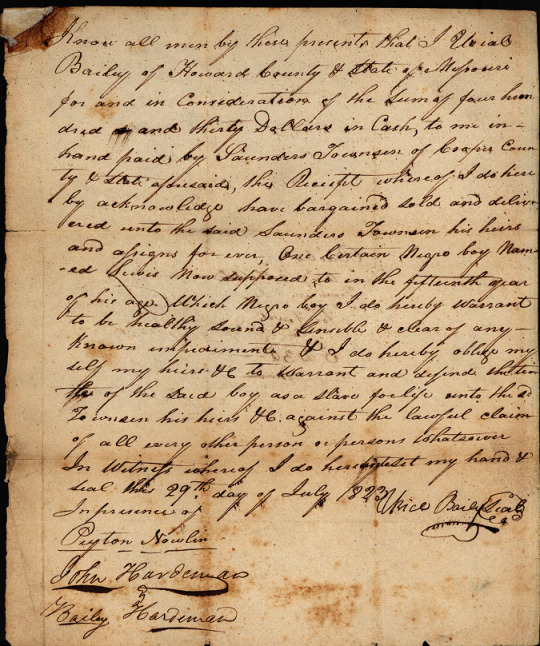 Know all men by these presents that I Urial
Bailey of Howard County & State of Missouri
for and in Consideration of the Sum of four hun
dred and thirty Dollars in Cash, to me in-
hand paid by Saunders Townsen of Cooper Coun
ty & State aforesaid, the Receipt whereof I do here
by acknowledge have bargained sold and deliv
ered unto the said Saunders Townsen his heirs
and assigns for ever, One Certain Negro boy Nam-
-ed Lewis Now supposed to in the fifteenth year
of his age Which Negro boy I do hereby Warrant
to be healthy sound & Sensible & clear of any-
Known impediments & I do hereby oblige my
self my heirs &C to Warrant and defend the
of the said boy as a slave for life unto the sd
Townsen his heirs &C against the lawful claim
of all every other person or persons Whatsoever
In Witness whereof I do hereunto set my hand &
seal this 29th day of July 1823
Bailey Seal
In presence of
Peyton Nowlin
John Hardeman
Bailey Hardeman